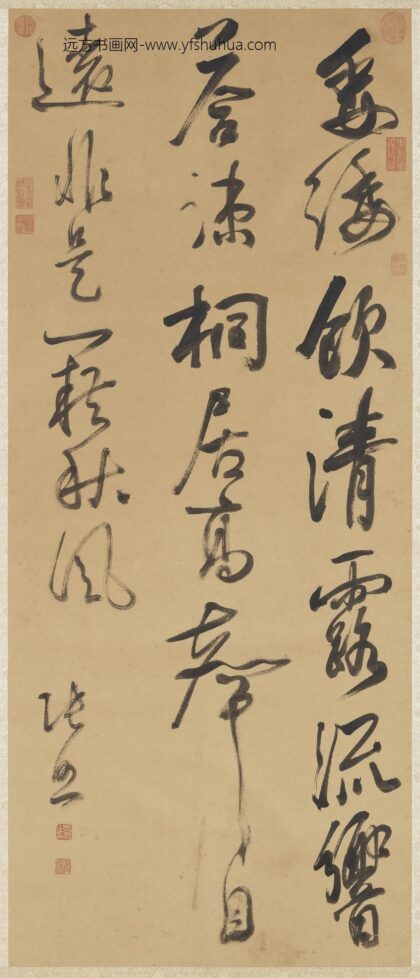 远方书画网-www.yfshuhua.com
委緌飲清露流響
荅疎桐居高聲自
遠非是藉秋風
張照